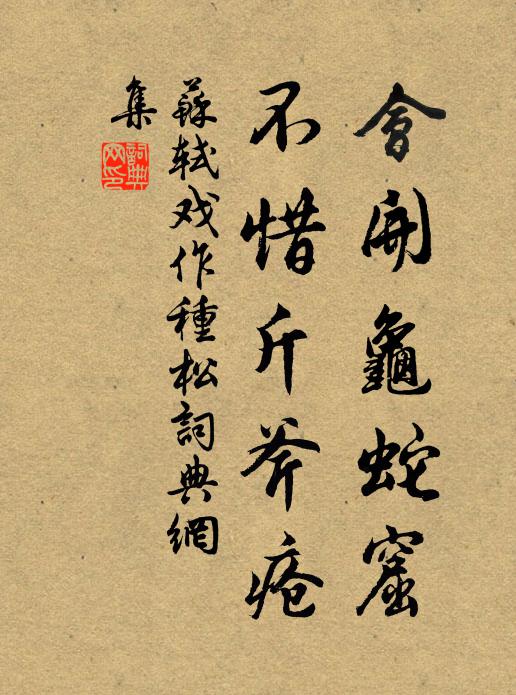 會開龜蛇窟
不惜斤斧瘡
蘇軾戏作種松詞典網
集
詞典
网印